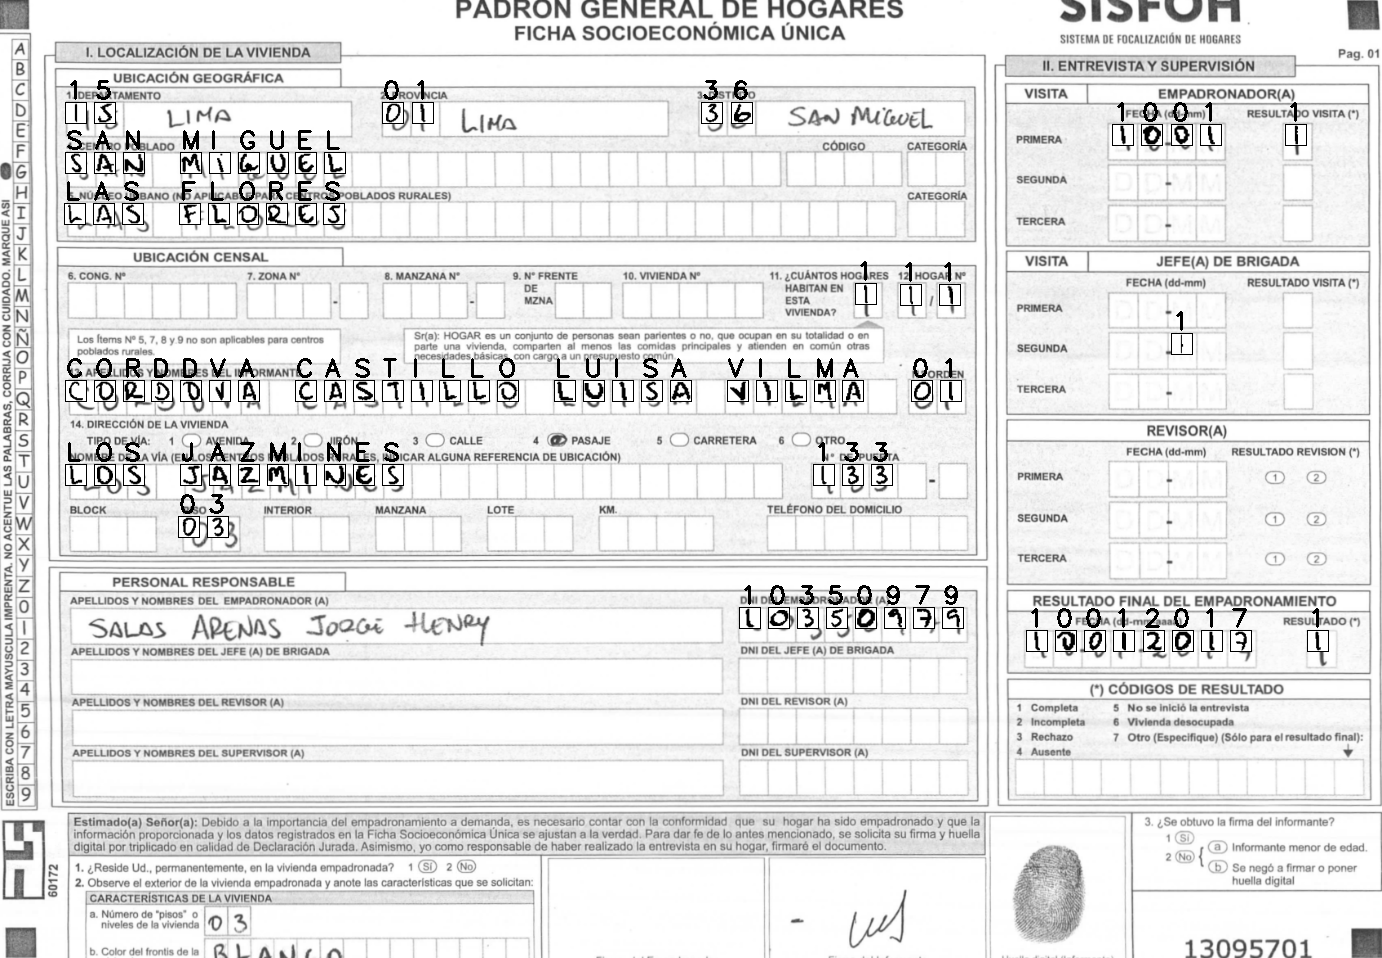 PADRÓN GENERAL DE HOGARES
FICHA SOCIOECONÓMICA ÚNICA
SISFOH
SISTEMA DE FOCALIZACIÓN DE HOGARES
Pag. 01
ESCRIBA CON LETRA MAYUSCULA IMPRENTA. NO ACENTUE LAS PALABRAS, CORRIJA CON CUIDADO. MARQUE ASI
A B C D E F G H I J K L M N Ñ O P Q R S T U V W X Y Z 0 1 2 3 4 5 6 7 8 9
I. LOCALIZACIÓN DE LA VIVIENDA
UBICACIÓN GEOGRÁFICA
15 01 36
15 LIMA 01 LIMA 36 SAN MIGUEL
SAN MIGUEL
CÓDIGO CATEGORÍA
SAN MIGUEL
LAS FLORES
5. NÚCLEO URBANO (NO APLICABLE PARA CENTROS POBLADOS RURALES) CATEGORÍA
LAS FLORES
UBICACIÓN CENSAL
6. CONG. Nº 7. ZONA Nº 8. MANZANA Nº 9. Nº FRENTE DE MZNA 10. VIVIENDA Nº 11. ¿CUÁNTOS HOGARES HABITAN EN ESTA VIVIENDA? 12. HOGAR Nº
1 1 1
1 1 / 1
Los Ítems Nº 5, 7, 8 y 9 no son aplicables para centros poblados rurales.
Sr(a): HOGAR es un conjunto de personas sean parientes o no, que ocupan en su totalidad o en
parte una vivienda, comparten al menos las comidas principales y atienden en común otras
necesidades básicas, con cargo a un presupuesto común
CORDDVA CASTILLO LUISA VILMA 01
13. APELLIDOS Y NOMBRES DEL INFORMANTE Nº ORDEN
CORDOVA CASTILLO LUISA VILMA 01
14. DIRECCIÓN DE LA VIVIENDA
TIPO DE VÍA: 1 AVENIDA 2 JIRÓN 3 CALLE 4 PASAJE 5 CARRETERA 6 OTRO
LOS JAZMINES 133
NOMBRE DE LA VÍA (EN LOS CENTROS POBLADOS RURALES, INDICAR ALGUNA REFERENCIA DE UBICACIÓN) Nº DE PUERTA
LOS JAZMINES 133 -
03
BLOCK PISO INTERIOR MANZANA LOTE KM. TELÉFONO DEL DOMICILIO
03
PERSONAL RESPONSABLE
APELLIDOS Y NOMBRES DEL EMPADRONADOR (A) DNI DEL EMPADRONADOR (A)
10350979
SALAS ARENAS JORGE HENRY 10350979
APELLIDOS Y NOMBRES DEL JEFE (A) DE BRIGADA DNI DEL JEFE (A) DE BRIGADA
APELLIDOS Y NOMBRES DEL REVISOR (A) DNI DEL REVISOR (A)
APELLIDOS Y NOMBRES DEL SUPERVISOR (A) DNI DEL SUPERVISOR (A)
II. ENTREVISTA Y SUPERVISIÓN
VISITA EMPADRONADOR(A)
FECHA (dd-mm) RESULTADO VISITA (*)
1001 1
PRIMERA 1001 1
SEGUNDA DD-MM
TERCERA DD-MM
VISITA JEFE(A) DE BRIGADA
FECHA (dd-mm) RESULTADO VISITA (*)
PRIMERA
1
SEGUNDA
TERCERA
REVISOR(A)
FECHA (dd-mm) RESULTADO REVISION (*)
PRIMERA 1 2
SEGUNDA DD-MM 1 2
TERCERA DD-MM 1 2
RESULTADO FINAL DEL EMPADRONAMIENTO
10012017 1
FECHA (dd-mm-aaaa) RESULTADO (*)
10012017 1
(*) CÓDIGOS DE RESULTADO
1 Completa 5 No se inició la entrevista
2 Incompleta 6 Vivienda desocupada
3 Rechazo 7 Otro (Especifique) (Sólo para el resultado final):
4 Ausente
Estimado(a) Señor(a): Debido a la importancia del empadronamiento a demanda, es necesario contar con la conformidad que su hogar ha sido empadronado y que la
información proporcionada y los datos registrados en la Ficha Socioeconómica Única se ajustan a la verdad. Para dar fe de lo antes mencionado, se solicita su firma y huella
digital por triplicado en calidad de Declaración Jurada. Asimismo, yo como responsable de haber realizado la entrevista en su hogar, firmaré el documento.
60172
1. ¿Reside Ud., permanentemente, en la vivienda empadronada? 1 Sí 2 No
2. Observe el exterior de la vivienda empadronada y anote las características que se solicitan:
CARACTERÍSTICAS DE LA VIVIENDA
a. Número de "pisos" o niveles de la vivienda 03
b. Color del frontis de la BLANCO
3. ¿Se obtuvo la firma del informante?
1 Sí
2 No
a Informante menor de edad.
b Se negó a firmar o poner huella digital
13095701